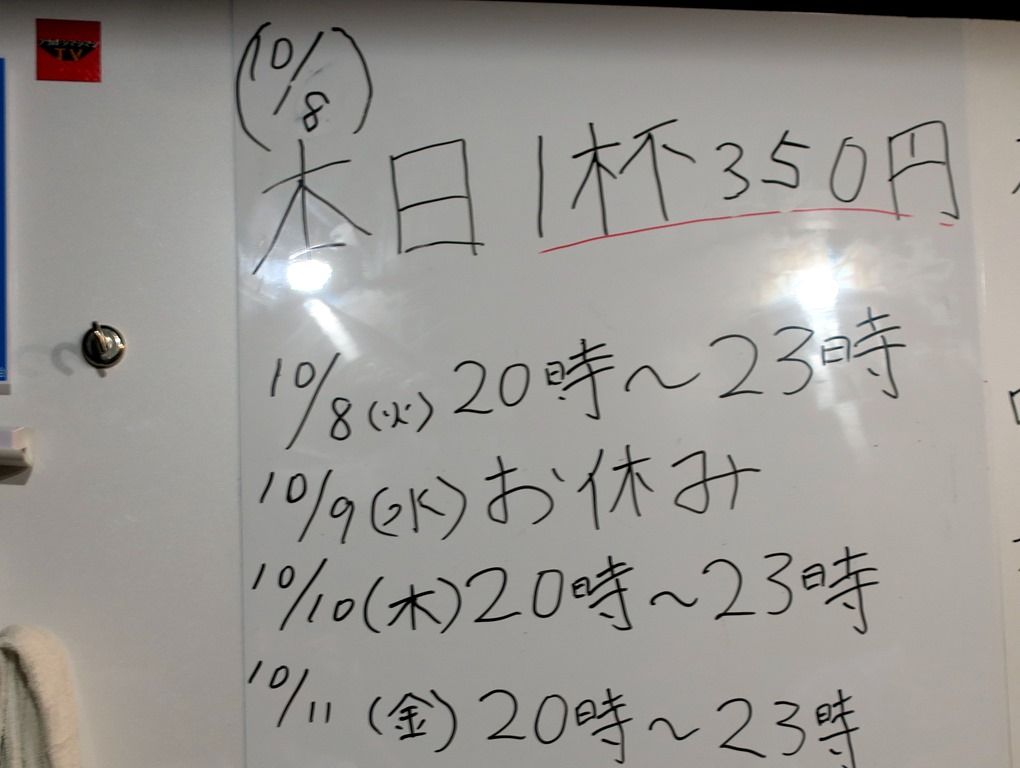 (10/8)
本日 1杯350円
10/8(火) 20時～23時
10/9(水) お休み
10/10(木) 20時～23時
10/11(金) 20時～23時
TV